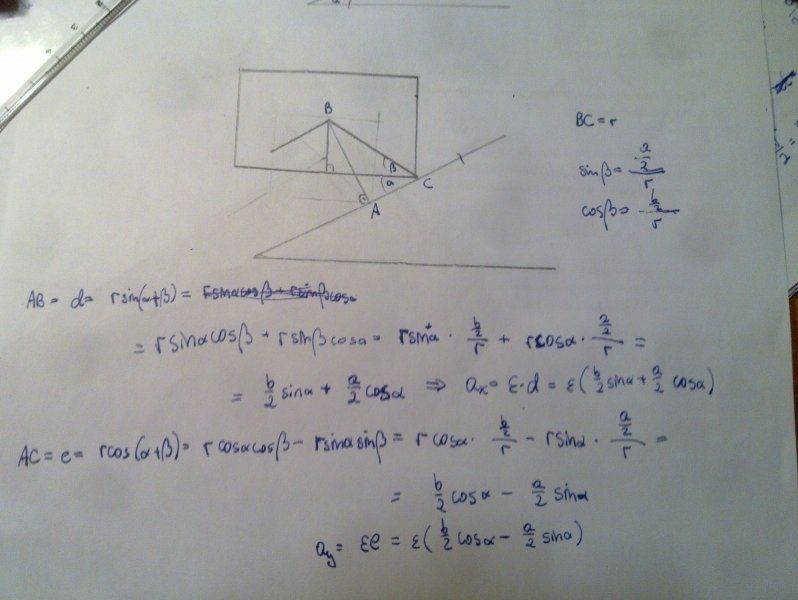 B
β
α
C
A
BC = r
sinβ = (a/2)/r
cosβ = (b/2)/r
AB = d = r sin(α+β) =
= r sinα cosβ + r sinβ cosα = r sinα · (b/2)/r + r cosα · (a/2)/r =
= b/2 sinα + a/2 cosα ⇒ ax = ε·d = ε(b/2 sinα + a/2 cosα)
AC = e = r cos(α+β) = r cosα cosβ − r sinα sinβ = r cosα · (b/2)/r − r sinα · (a/2)/r =
= b/2 cosα − a/2 sinα
ay = εe = ε(b/2 cosα − a/2 sinα)